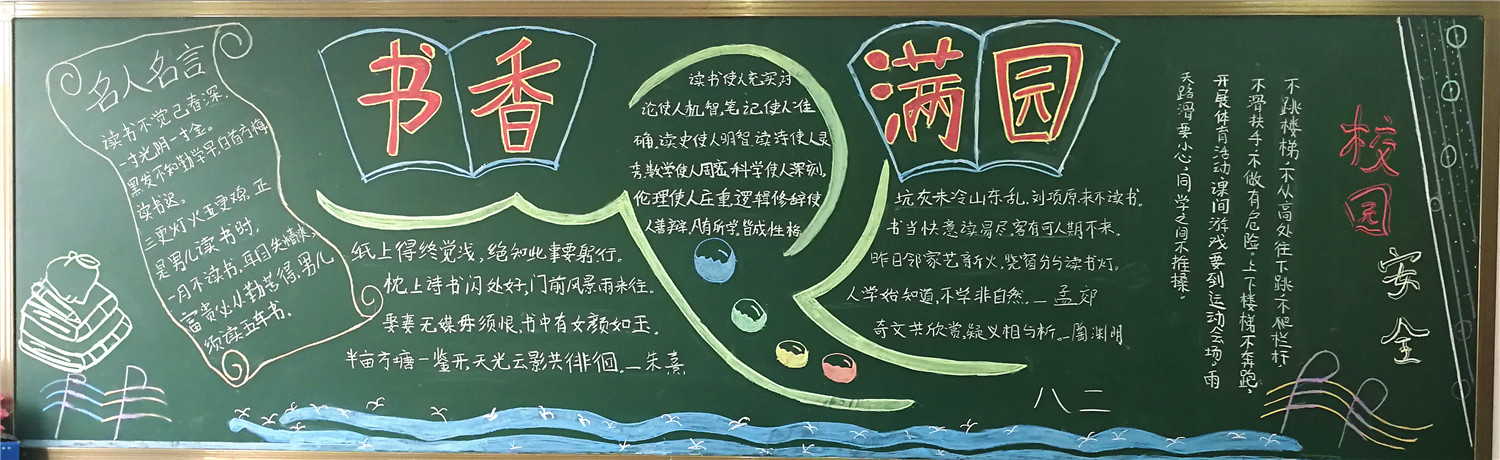 名人名言
读书不觉已春深,
一寸光阴一寸金。
黑发不知勤学早,白首方悔
读书迟。
三更灯火五更鸡,正
是男儿读书时,
一月不读书,耳目失精爽。
富贵必从勤苦得,男儿
须读五车书。
书香
满园
读书使人充实,讨
论使人机智,笔记使人准
确,读史使人明智,读诗使人灵
秀,数学使人周密,科学使人深刻,
伦理使人庄重,逻辑修辞使
人善辩,凡有所学,皆成性格
纸上得终觉浅,绝知此事要躬行。
枕上诗书闪处好,门前风景雨来往。
娶妻无媒毋须恨,书中有女颜如玉。
半亩方塘一鉴开,天光云影共徘徊。—朱熹
坑灰未冷山东乱,刘项原来不读书。
书当快意读易尽,客有可人期不来。
昨日邻家乞新火,晓窗分与读书灯。
人学始知道,不学非自然。—孟郊
奇文共欣赏,疑义相与析。—陶渊明
八二
校园安全
不跳楼梯,不从高处往下跳,不爬栏杆,
不滑扶手,不做有危险。上下楼梯不奔跑,
开展体育活动,课间游戏要到运动会场。雨
天路滑要小心,同学之间不推搡。